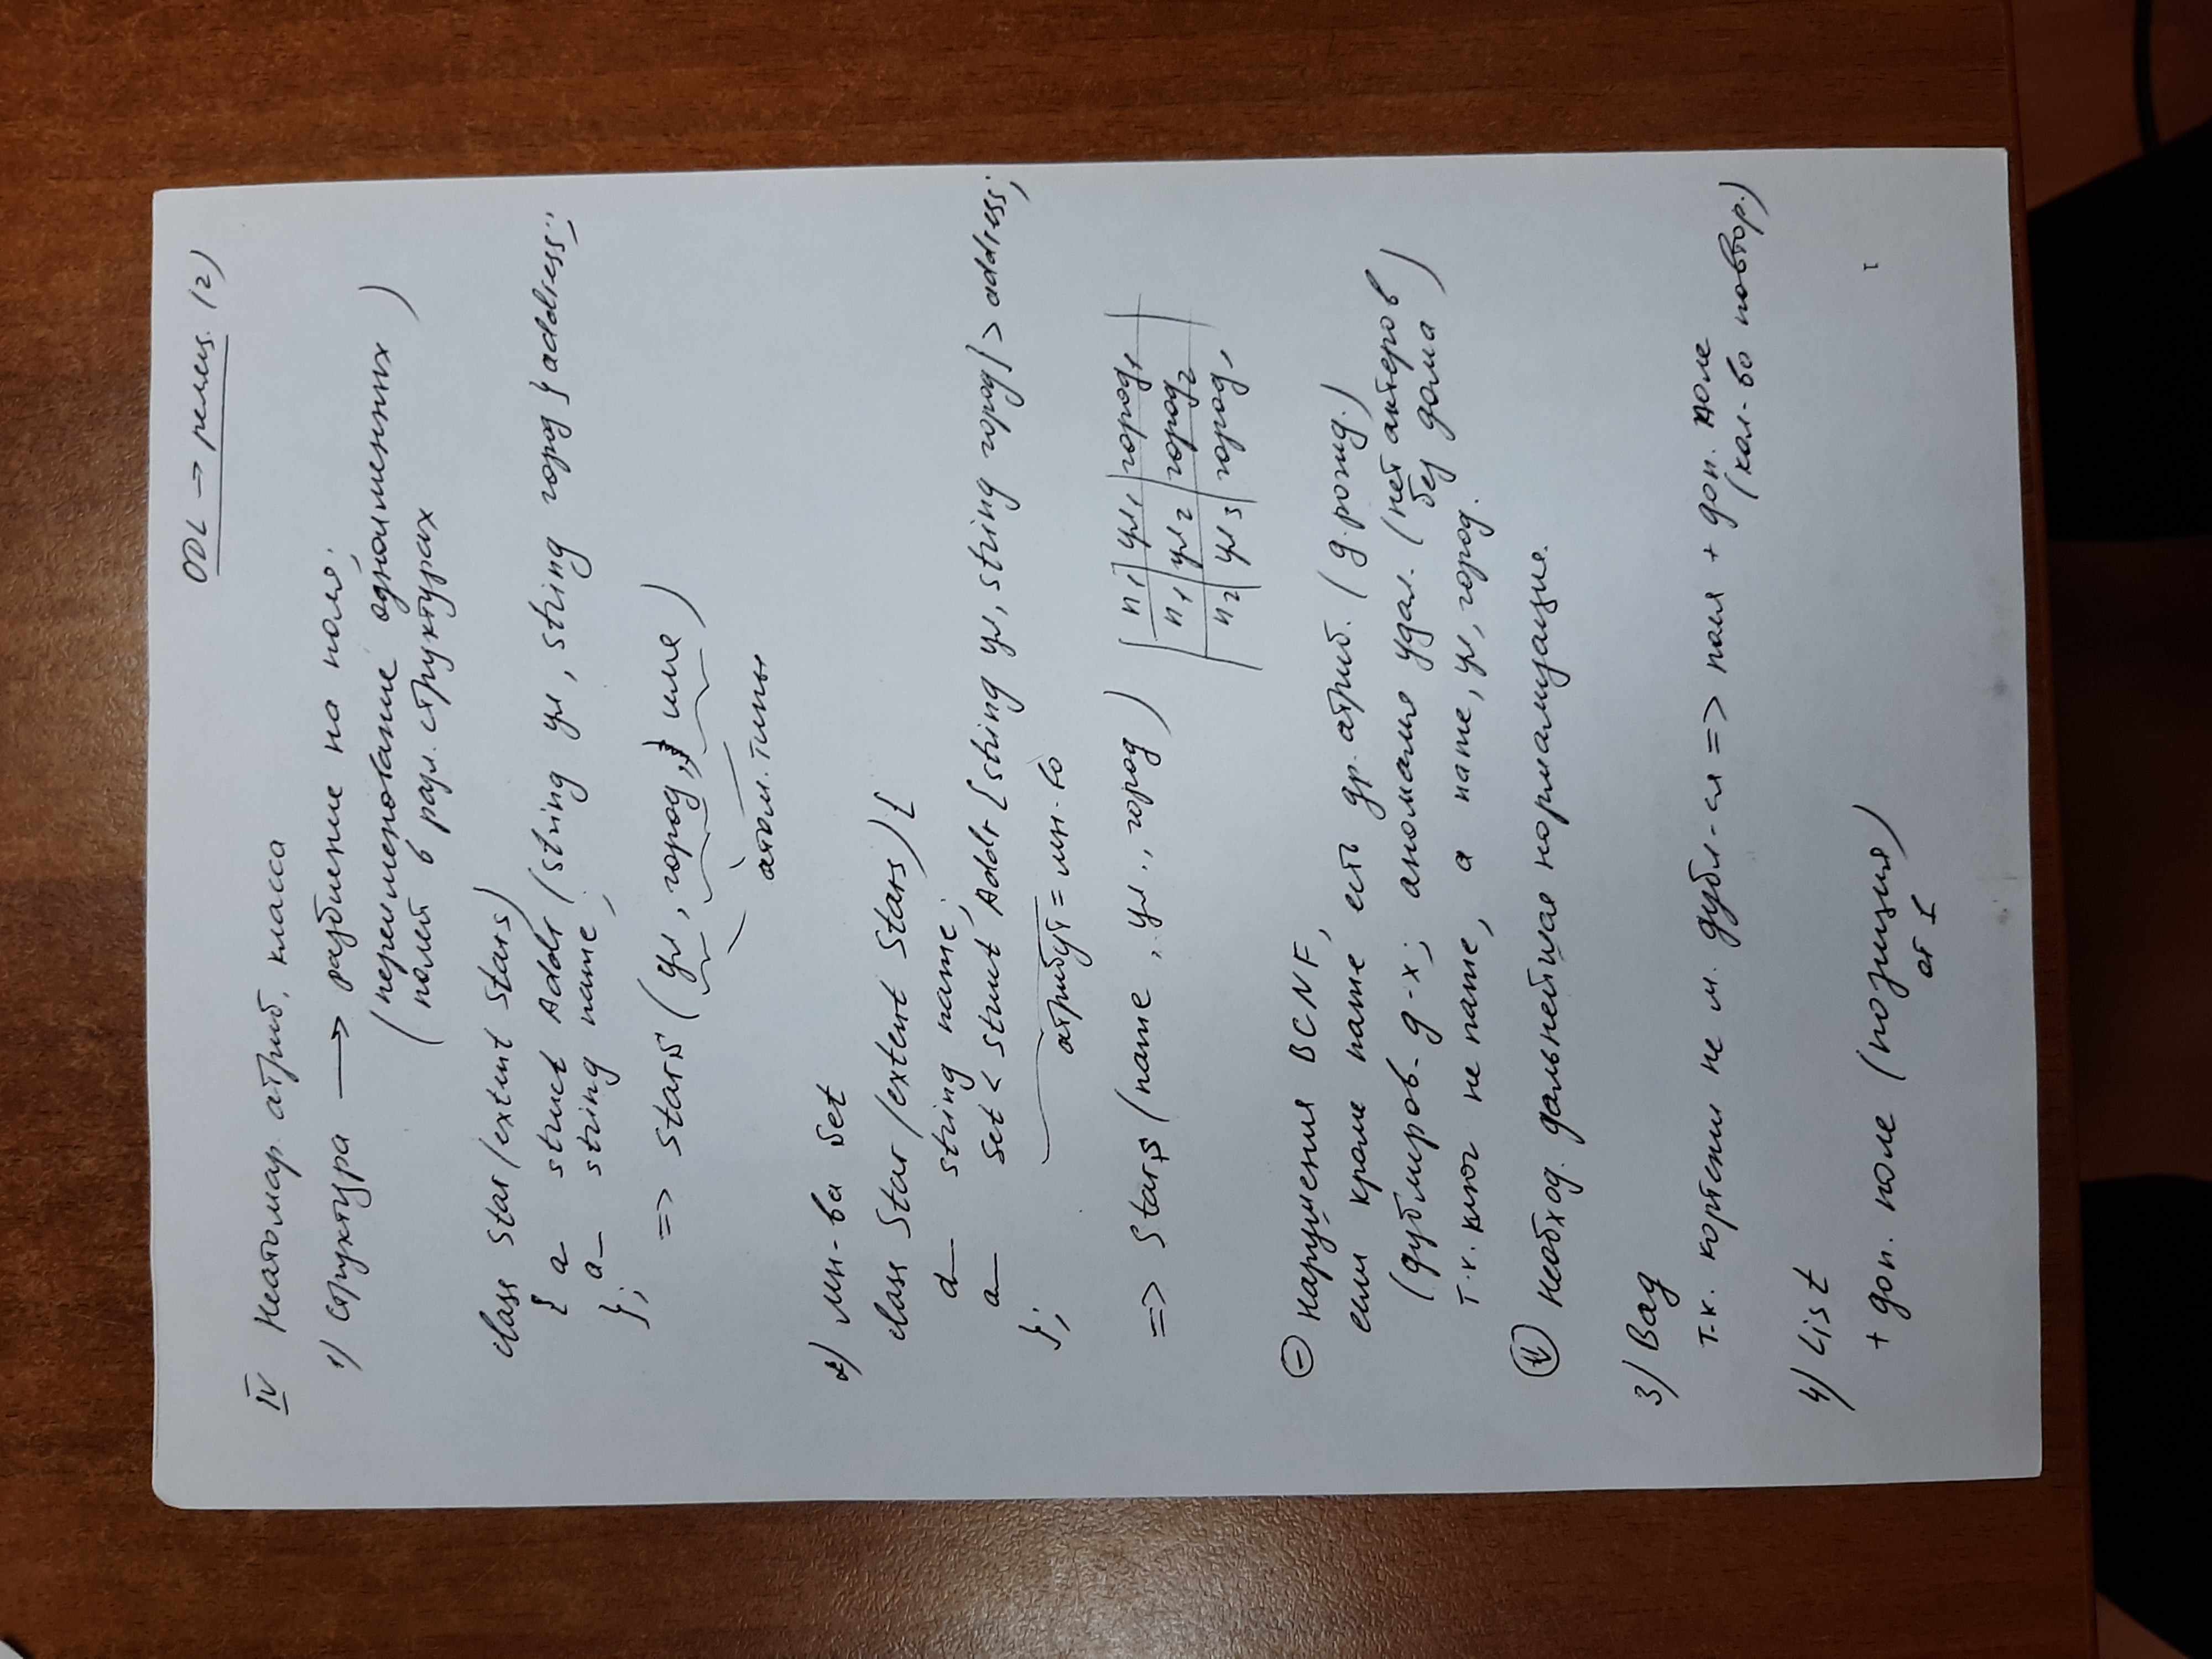 ODL → реляц. (2)
IV Неатомар. атриб. класса
1) Структура → разбиение на поля;
(переименование одноименных)
(полей в разл. структурах
class Star (extent Stars)
{ a— struct Addr {string ул, string город} address;
a— string name;
};
=> Stars (ул, город, имя)
атом. типы
2) мн-ва Set
class Star (extent Stars) {
a— string name;
a— Set < struct Addr {string ул, string город} > address;
};
атрибут = мн-во
=> Stars (name, ул., город)
n₁ | ул₁ | город₁
n₁ | ул₂ | город₂
n₂ | ул₃ | город₁
⊖ нарушения BCNF,
если кроме name есть др. атриб. (д. рожд.)
(дублиров. д-х; аномалия удал. (нет актеров
без дома)
т.к. ключ не name, а name, ул, город.
⇓ необход. дальнейшая нормализация.
3) Bag
т.к. кортежи не м. дубл-ся => поля + доп. поле
(кол-во повтор.)
4) List
+ доп. поле (позиция)
от 1